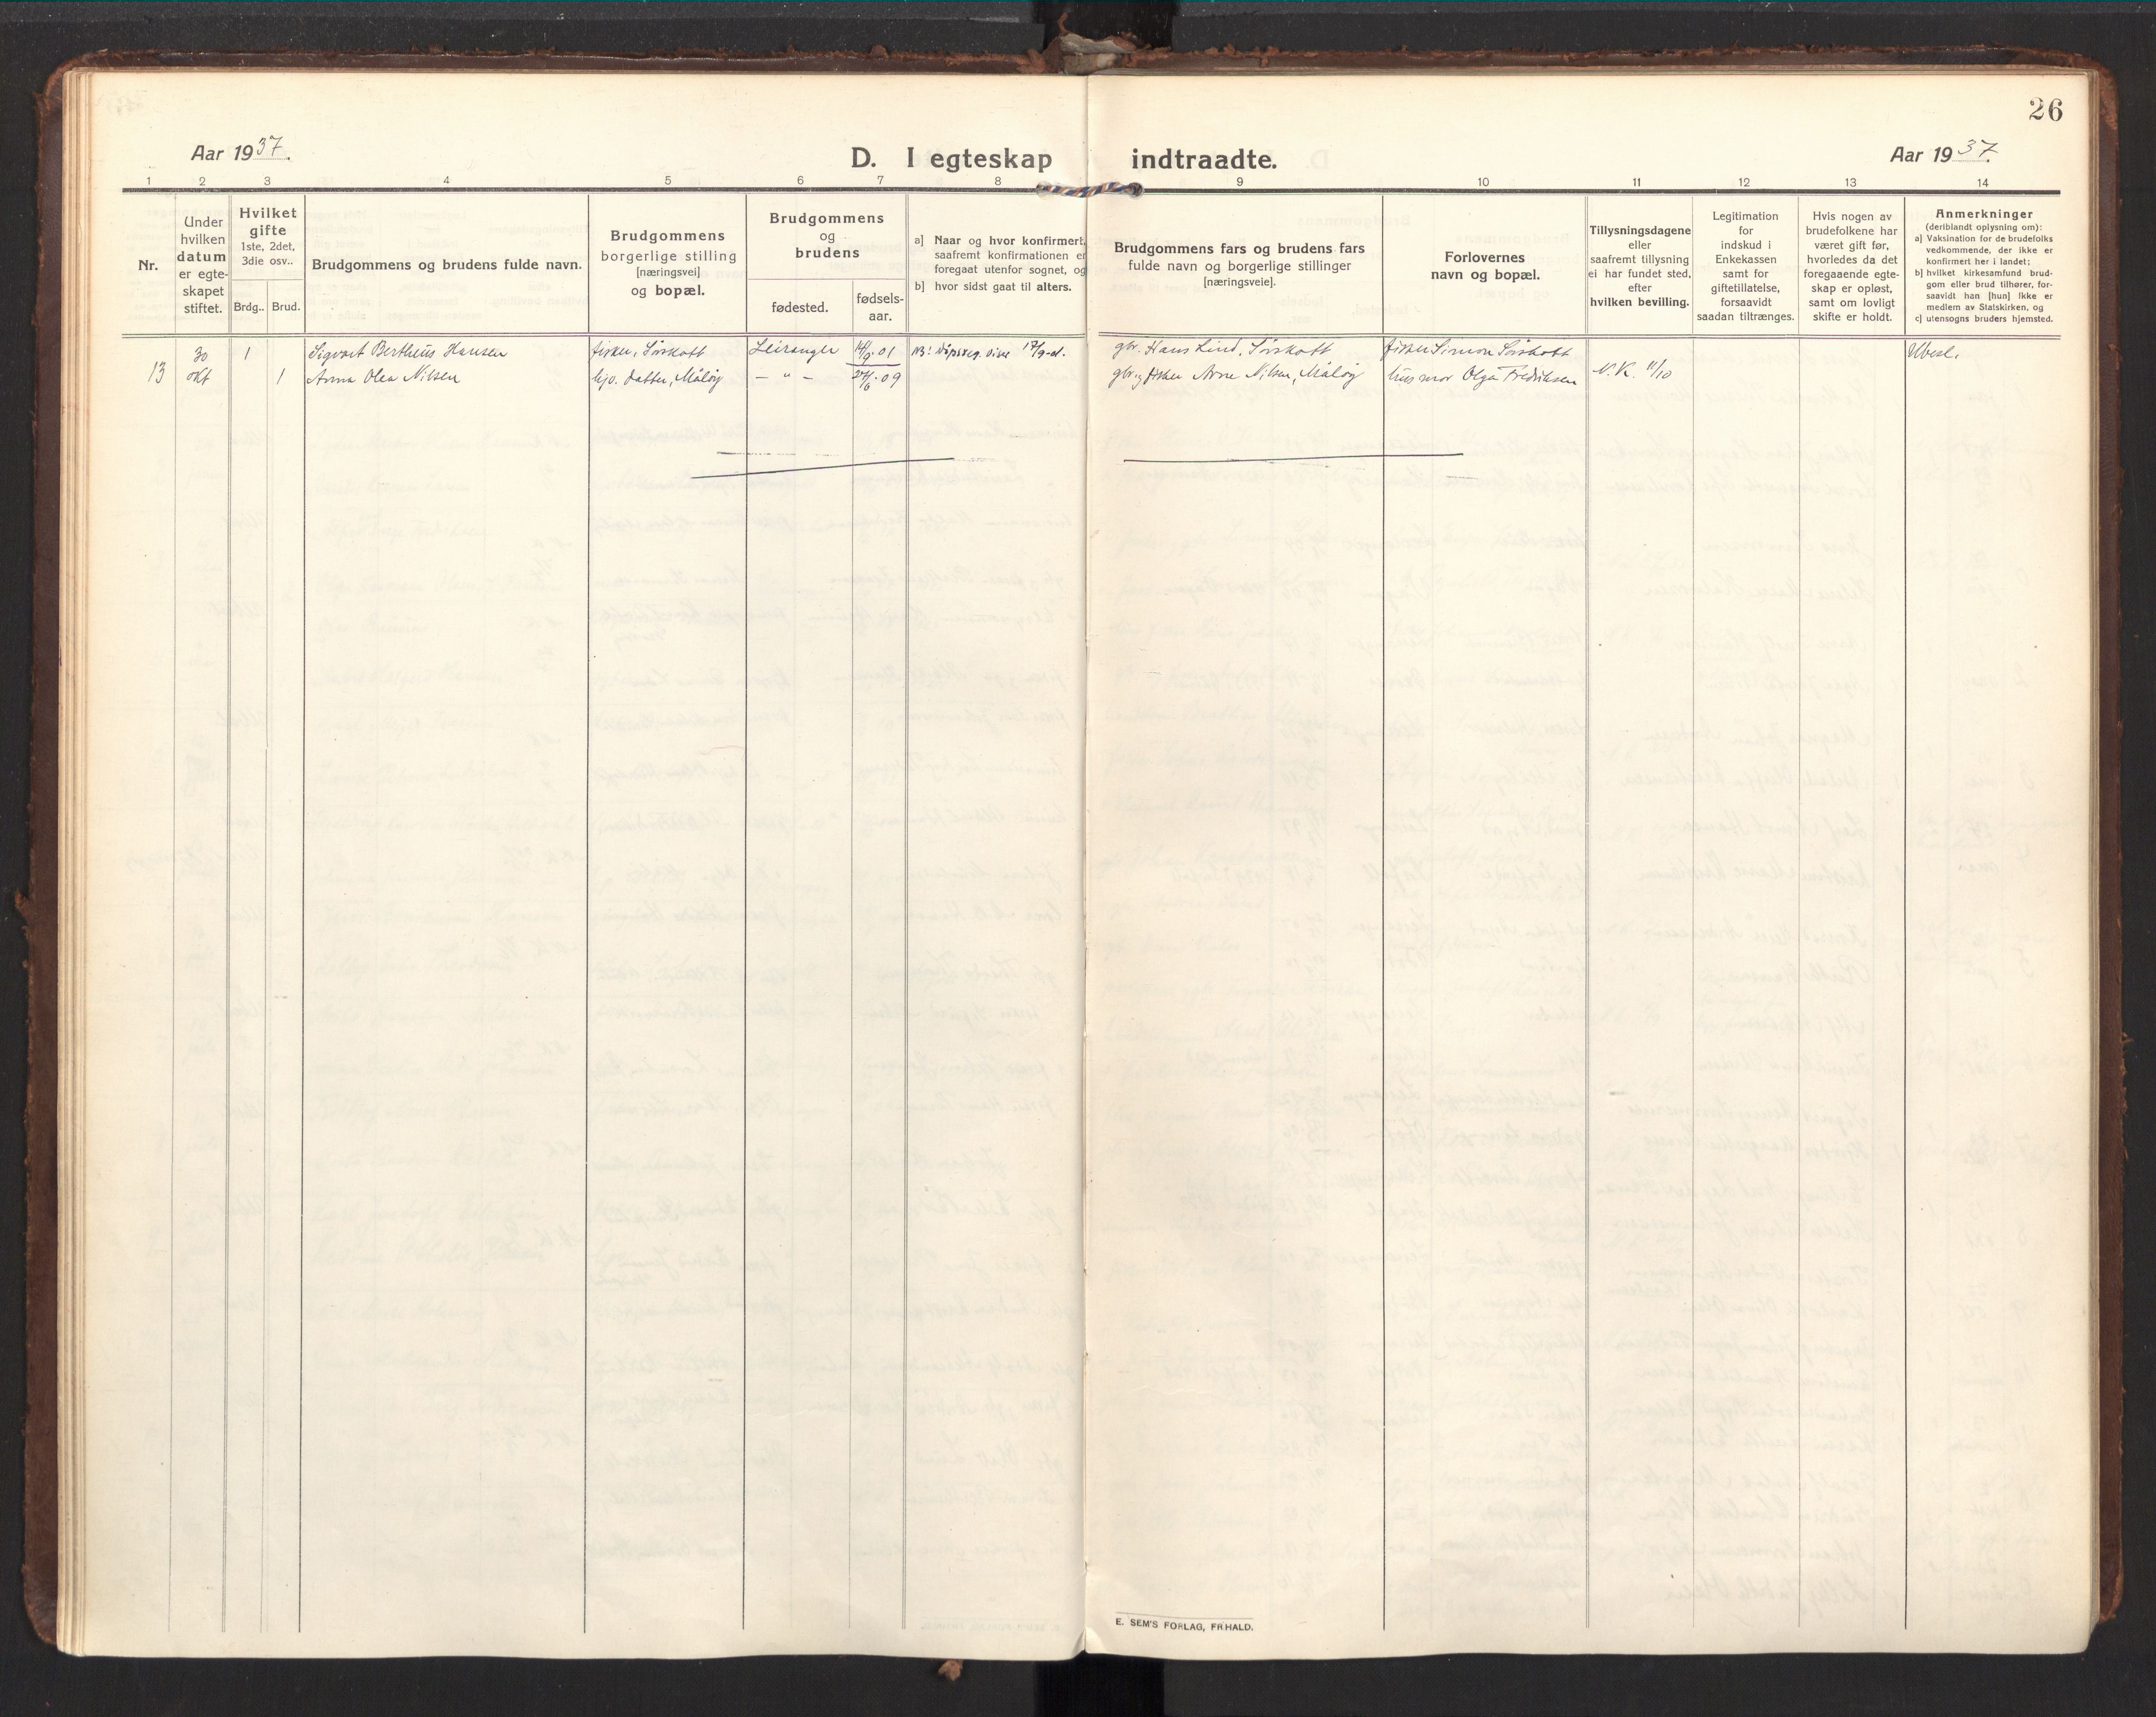 26
Aar 1937.
D. I egteskap indtraadte.
Aar 1937.
1 2 3 4 5 6 7 8 9 10 11 12 13 14
Nr.
Under
hvilken
datum
er egte-
skapet
stiftet.
Hvilket
gifte
1ste, 2det,
3die osv..
Brdg.. Brud.
Brudgommens og brudens fulde navn.
Brudgommens
borgerlige stilling
[næringsvei]
og bopæl.
Brudgommens
og
brudens
fødested.
fødsels-
aar.
a] Naar og hvor konfirmert,
saafremt konfirmationen er
foregaat utenfor sognet, og
b] hvor sidst gaat til alters.
Brudgommens fars og brudens fars
fulde navn og borgerlige stillinger
[næringsveie].
Forlovernes
navn og bopæl.
Tillysningsdagene
eller
saafremt tillysning
ei har fundet sted,
efter
hvilken bevilling.
Legitimation
for
indskud i
Enkekassen
samt for
giftetillatelse,
forsaavidt
saadan tiltrænges.
Hvis nogen av
brudefolkene har
været gift før,
hvorledes da det
foregaaende egte-
skap er opløst,
samt om lovligt
skifte er holdt.
Anmerkninger
(deriblandt oplysning om):
a] Vaksination for de brudefolks
vedkommende, der ikke er
konfirmert her i landet;
b] hvilket kirkesamfund brud-
gom eller brud tilhører, for-
saavidt han [hun] ikke er
medlem av Statskirken, og
c] utensogns bruders hjemsted.
30 1 Sigvart Bertheus Hansen fisker, Sørskott Leiranger 14/9-01 NB! Dåpsreg. viser 17/9-d. gbr. Hans Lind, Sørskott fisker Simon Sørskott Ubesl.
13 okt 1 Anna Olea Nilsen hjv. datter, Måløy — " — 24/6-09 gbr. og fisker Arne Nilsen, Måløy husmor Olga Fredriksen N.K. 11/10
E. SEM'S FORLAG, FR.HALD.